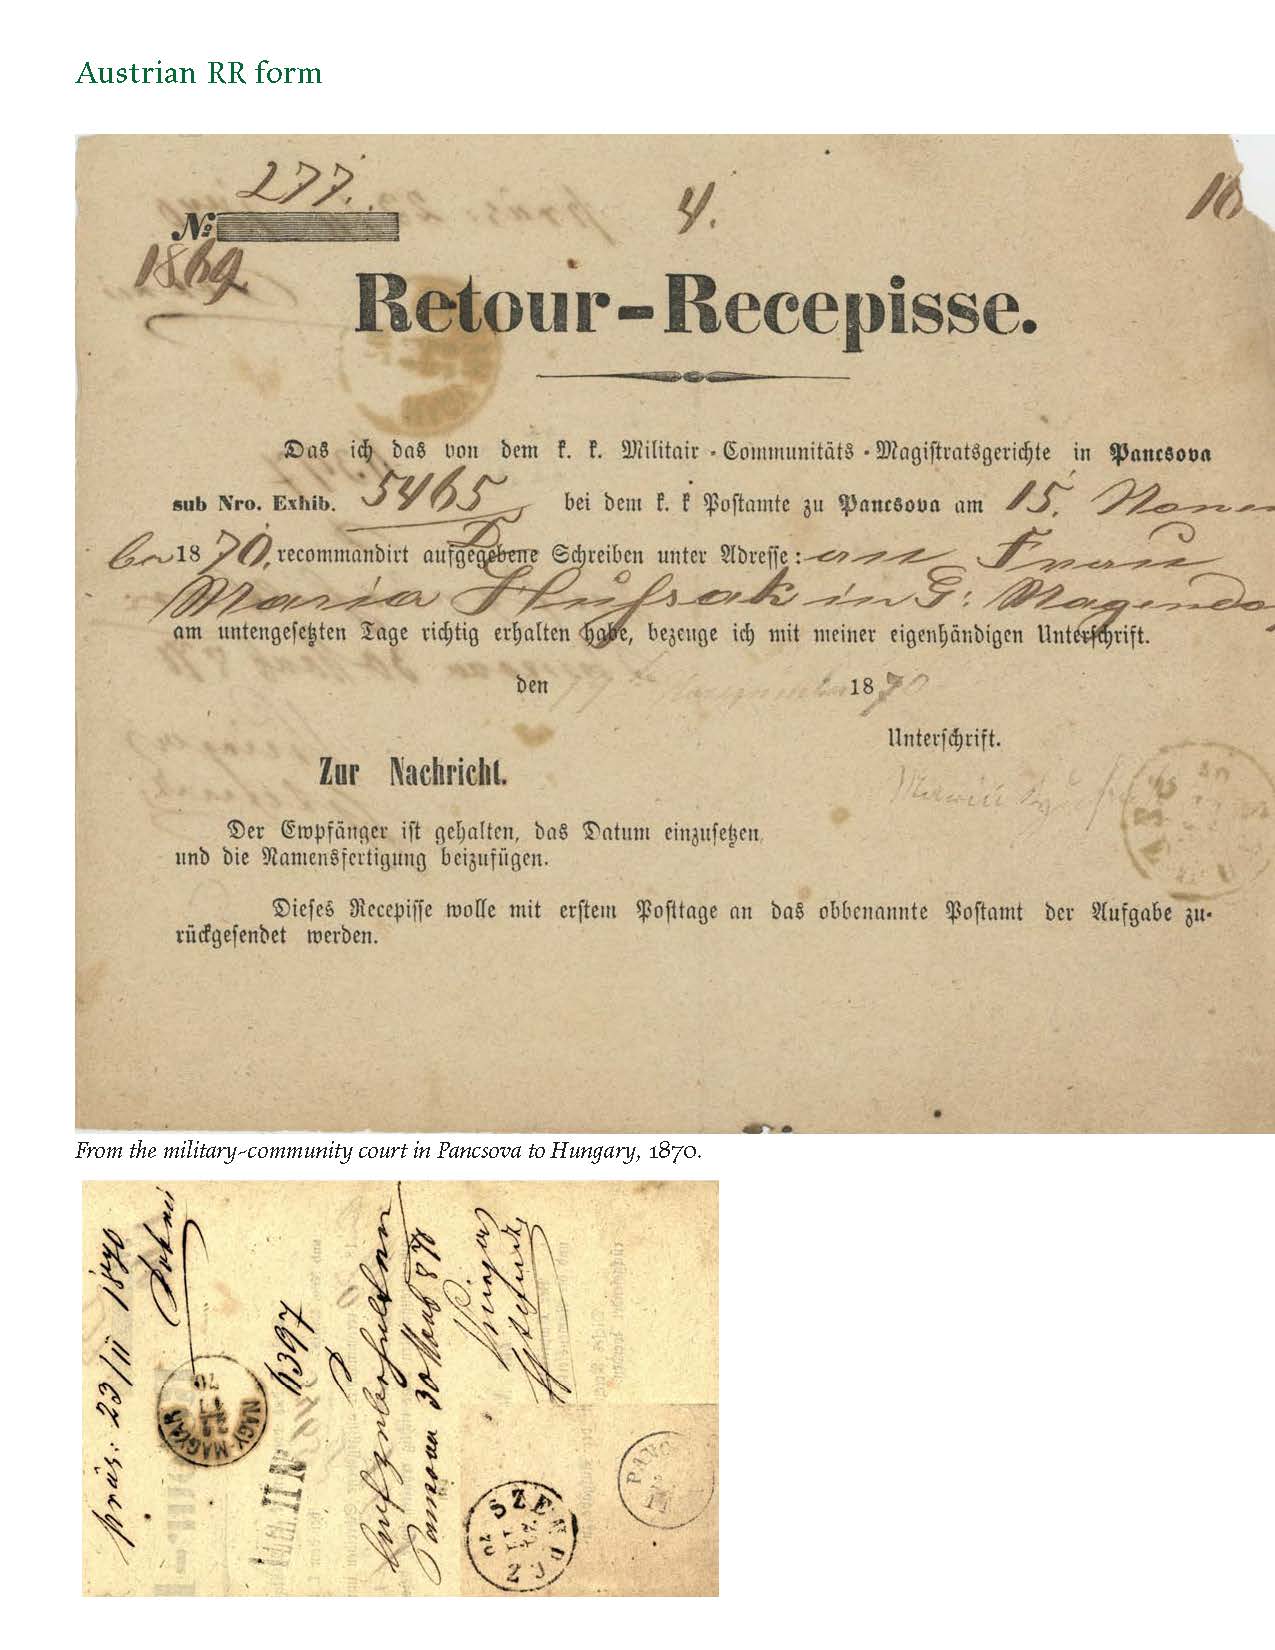 Austrian RR form
277.
4.
No:
1869
Retour-Recepisse.
Das ich das von dem k. k. Militair-Communitäts-Magistratsgerichte in Pancsova
sub Nro. Exhib. 5465 bei dem k. k Postamte zu Pancsova am 15. Novem
ber 1870, recommandirt aufgegebene Schreiben unter Adresse: an Frau
Maria in G:
am untengesetzten Tage richtig erhalten habe, bezeuge ich mit meiner eigenhändigen Unterschrift.
den 1870
Unterschrift.
Zur Nachricht.
Der Empfänger ist gehalten, das Datum einzusetzen,
und die Namensfertigung beizufügen.
Dieses Recepisse wolle mit erstem Posttage an das obbenannte Postamt der Aufgabe zu-
rückgesendet werden.
From the military-community court in Pancsova to Hungary, 1870.
präs: 23/11 1870
NAGY-MAGYAR
70
4397
Pancsova 30 870
SZEMPCZ
70
PANC